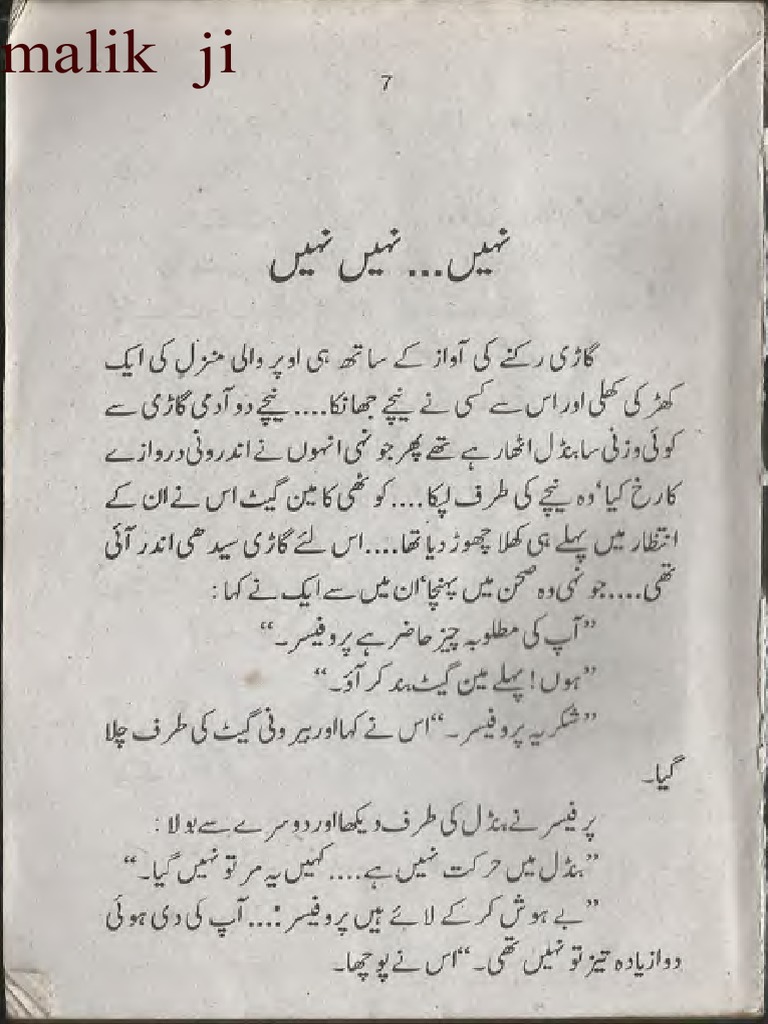 malik ji
7
نہیں... نہیں نہیں
گاڑی رکنے کی آواز کے ساتھ ہی اوپر والی منزل کی ایک
کھڑکی کھلی اور اس سے کسی نے نیچے جھانکا.... نیچے دو آدمی گاڑی سے
کوئی وزنی سا بنڈل اٹھا رہے تھے پھر جونہی انہوں نے اندرونی دروازے
کا رخ کیا‘ وہ نیچے کی طرف لپکا.... کوٹھی کا مین گیٹ اس نے ان کے
انتظار میں پہلے ہی کھلا چھوڑ دیا تھا.... اس لئے گاڑی سیدھی اندر آئی
تھی.... جونہی وہ صحن میں پہنچا‘ ان میں سے ایک نے کہا:
”آپ کی مطلوبہ چیز حاضر ہے پروفیسر۔“
”ہوں! پہلے مین گیٹ بند کر آؤ۔“
”شکریہ پروفیسر۔“ اس نے کہا اور بیرونی گیٹ کی طرف چلا
گیا۔
پرفیسر نے بنڈل کی طرف دیکھا اور دوسرے سے بولا:
”بنڈل میں حرکت نہیں ہے.... کہیں یہ مر تو نہیں گیا۔“
”بے ہوش کر کے لائے ہیں پروفیسر:... آپ کی دی ہوئی
دوا زیادہ تیز تو نہیں تھی۔“ اس نے پوچھا۔